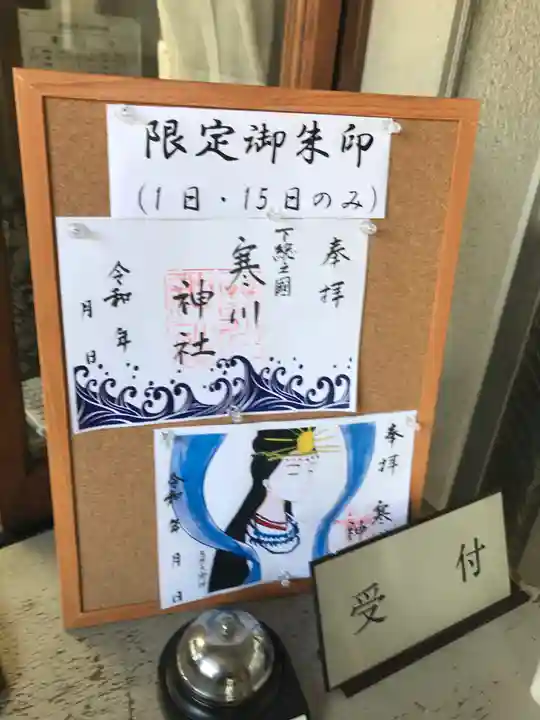 限定御朱印
(1日・15日のみ)
奉拝
下総之國
寒川
神社
令和 年
月 日
奉拝
寒
神
令和 年 月 日
受付